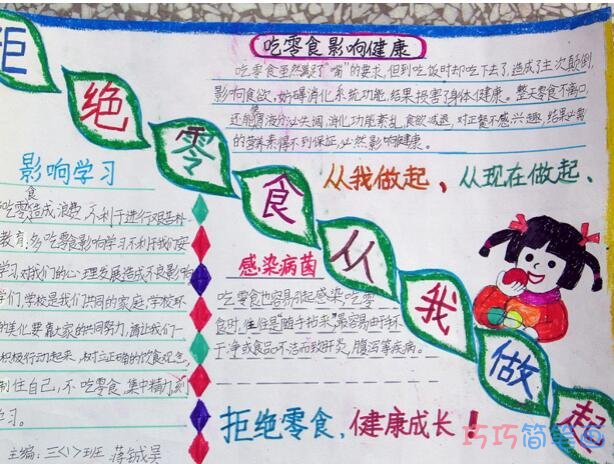 拒绝零食从我做起
吃零食影响健康
吃零食虽然满足了"嘴"的要求,但到吃饭时却吃下去了,造成了主次颠倒,
影响食欲,妨碍消化系统功能,结果损害了身体健康。整天零食不离口,
还能使消液分泌失调,消化功能紊乱,食欲减退,对正餐不感兴趣,结果必需
的营养素得不到保证,必然影响健康。
从我做起、从现在做起、
影响学习
吃零食造成浪费,不利于进行艰苦朴
教育,多吃零食影响学习不利于我们安
学习,对我们的心理发展造成不良影响
学们,学校是我们共同的家庭,学校环
的美化要靠大家的共同努力,请让我们一
积极行动起来,树立正确的饮食观念,
制住自己,不吃零食,集中精力刻
学习。
主编:三〈1〉班 蒋
感染病菌
吃零食也容易引起感染,吃零
食时,往往是"随手拈来",最容易由于手
干净或食品不洁而致肝炎,腹泻等疾病。
拒绝零食,健康成长!
巧巧简笔画